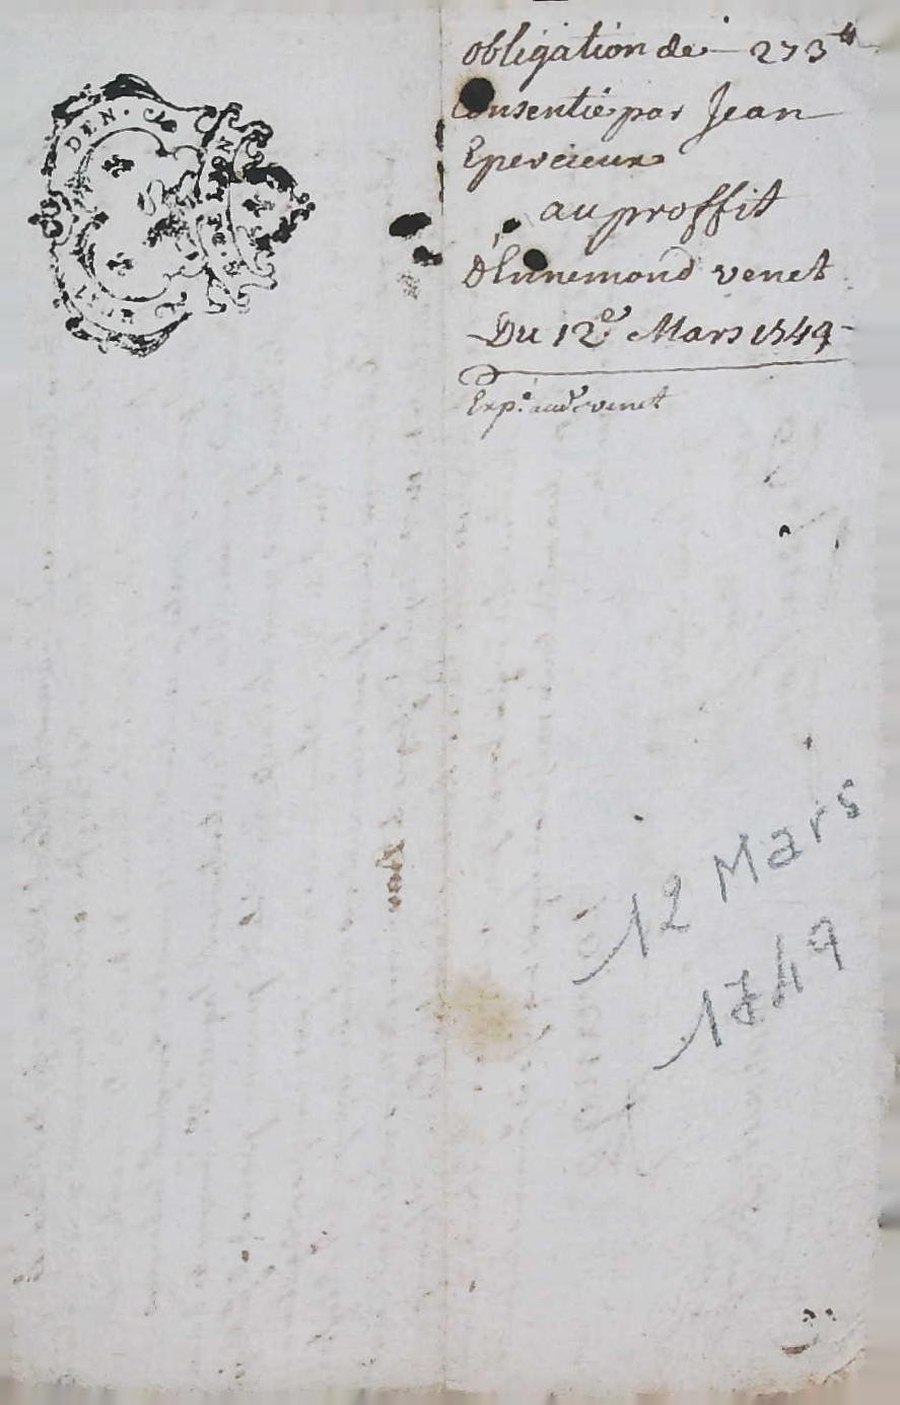 DEN.
G. DE LYON
obligation de 273 ₶
Consentie par Jean
Epercieux
au proffit
d'Ennemond venet
Du 12e. Mars 1749
Exp.é aud.t venet
12 Mars
1749